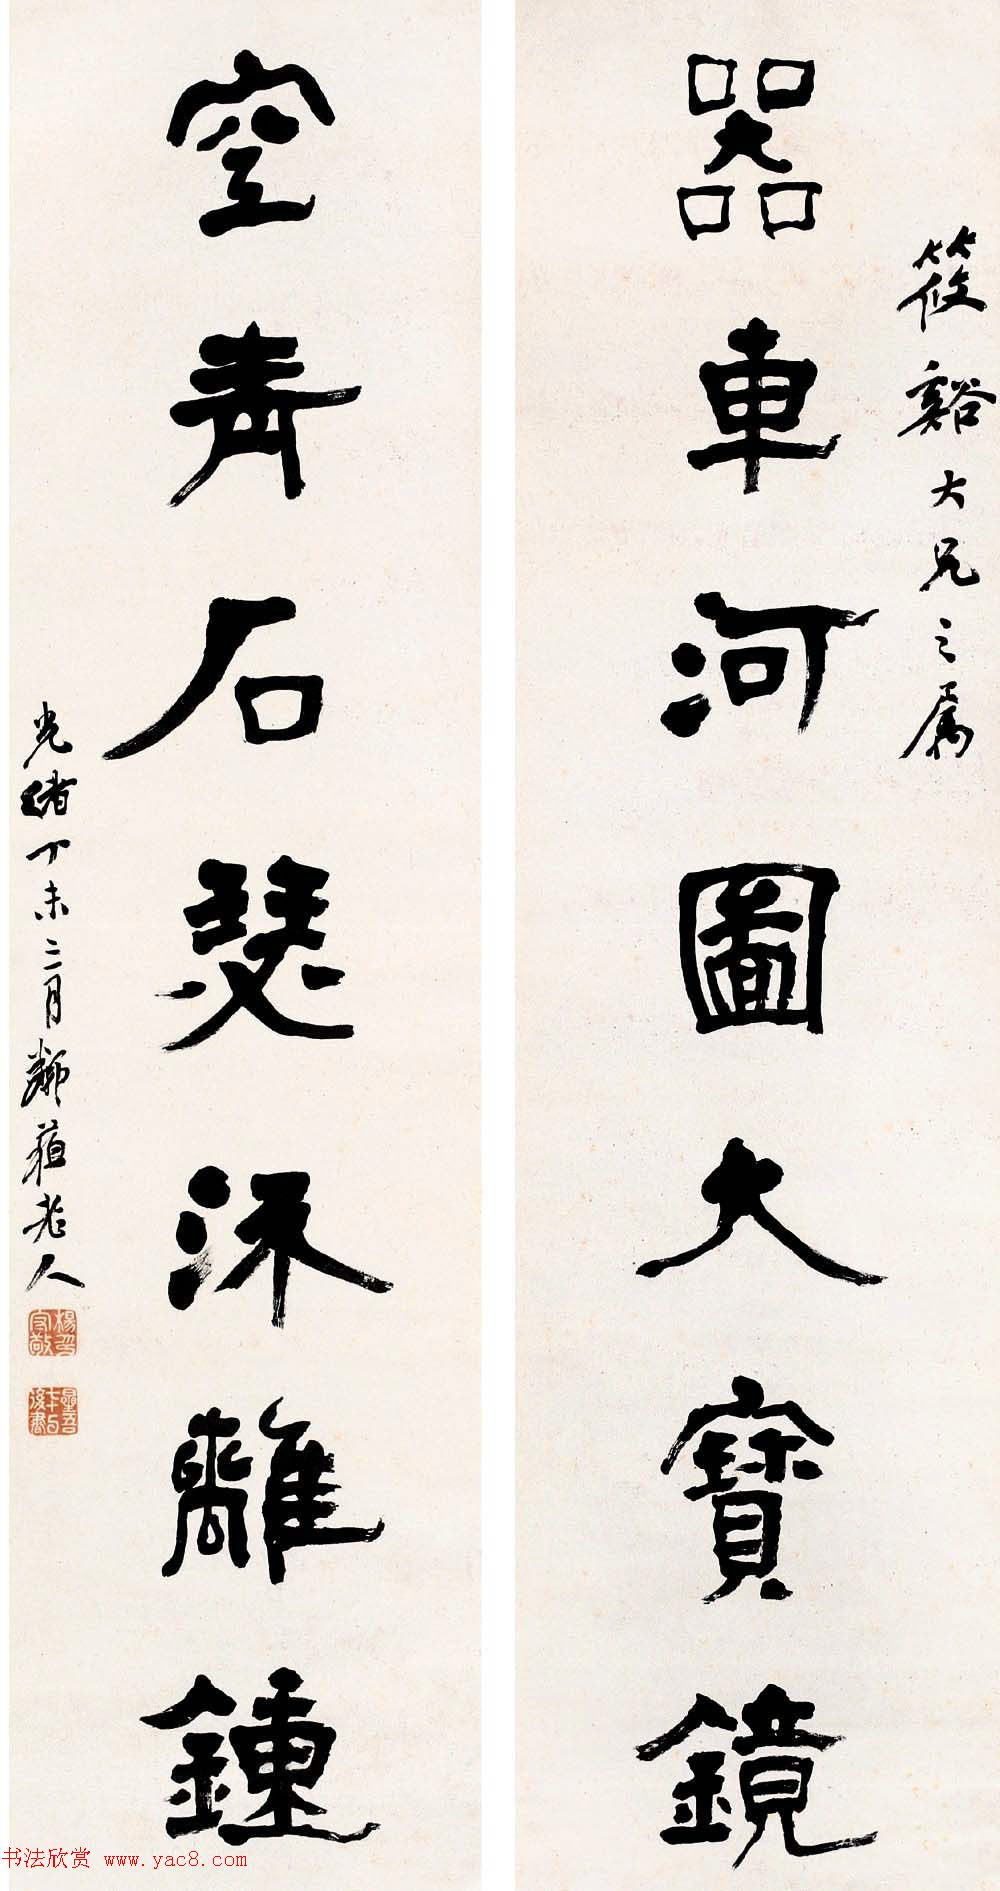 筱谿大兄之屬
器車河圖大寶鏡
空青石瑟離鍾
光緒丁未三月鄰蘇老人
楊守敬印
星吾七十以後書
书法欣赏 www.yac8.com